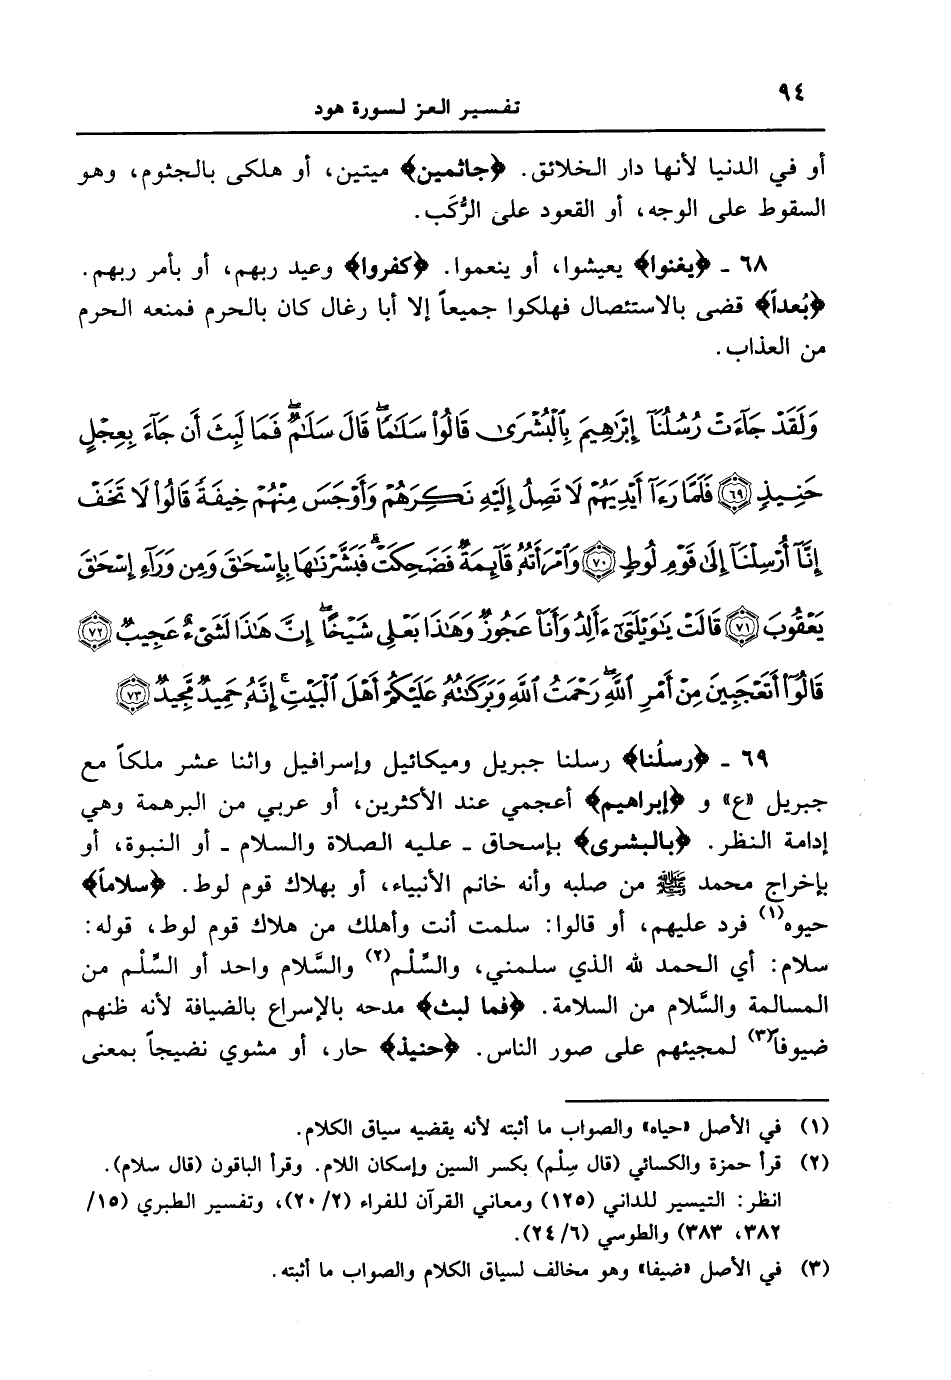 ٩٤
تفسير العز لسورة هود
أو في الدنيا لأنها دار الخلائق. ﴿جاثمين﴾ ميتين، أو هلكى بالجثوم، وهو
السقوط على الوجه، أو القعود على الرُّكَب.
٦٨ ـ ﴿يغنوا﴾ يعيشوا، أو ينعموا. ﴿كفروا﴾ وعيد ربهم، أو بأمر ربهم.
﴿بُعداً﴾ قضى بالاستئصال فهلكوا جميعاً إلا أبا رغال كان بالحرم فمنعه الحرم
من العذاب.
وَلَقَدْ جَآءَتْ رُسُلُنَآ إِبْرَٰهِيمَ بِٱلْبُشْرَىٰ قَالُوا۟ سَلَٰمًا ۖ قَالَ سَلَٰمٌ ۖ فَمَا لَبِثَ أَن جَآءَ بِعِجْلٍ
حَنِيذٍ ﴿٦٩﴾ فَلَمَّا رَءَآ أَيْدِيَهُمْ لَا تَصِلُ إِلَيْهِ نَكِرَهُمْ وَأَوْجَسَ مِنْهُمْ خِيفَةً قَالُوا۟ لَا تَخَفْ
إِنَّآ أُرْسِلْنَآ إِلَىٰ قَوْمِ لُوطٍ ﴿٧٠﴾ وَٱمْرَأَتُهُۥ قَآئِمَةٌ فَضَحِكَتْ فَبَشَّرْنَٰهَا بِإِسْحَٰقَ وَمِن وَرَآءِ إِسْحَٰقَ
يَعْقُوبَ ﴿٧١﴾ قَالَتْ يَٰوَيْلَتَىٰٓ ءَأَلِدُ وَأَنَا۠ عَجُوزٌ وَهَٰذَا بَعْلِى شَيْخًا ۖ إِنَّ هَٰذَا لَشَىْءٌ عَجِيبٌ ﴿٧٢﴾
قَالُوٓا۟ أَتَعْجَبِينَ مِنْ أَمْرِ ٱللَّهِ ۖ رَحْمَتُ ٱللَّهِ وَبَرَكَٰتُهُۥ عَلَيْكُمْ أَهْلَ ٱلْبَيْتِ ۚ إِنَّهُۥ حَمِيدٌ مَّجِيدٌ ﴿٧٣﴾
٦٩ ـ ﴿رسلُنا﴾ رسلنا جبريل وميكائيل وإسرافيل واثنا عشر ملكاً مع
جبريل «ع» و ﴿إبراهيم﴾ أعجمي عند الأكثرين، أو عربي من البرهمة وهي
إدامة النظر. ﴿بالبشرى﴾ بإسحاق ـ عليه الصلاة والسلام ـ أو النبوة، أو
بإخراج محمد ﷺ من صلبه وأنه خاتم الأنبياء، أو بهلاك قوم لوط. ﴿سلاماً﴾
حيوه(١) فرد عليهم، أو قالوا: سلمت أنت وأهلك من هلاك قوم لوط، قوله:
سلام: أي الحمد لله الذي سلمني، والسِّلْم(٢) والسَّلام واحد أو السِّلْم من
المسالمة والسَّلام من السلامة. ﴿فما لبث﴾ مدحه بالإسراع بالضيافة لأنه ظنهم
ضيوفاً(٣) لمجيئهم على صور الناس. ﴿حنيذ﴾ حار، أو مشوي نضيجاً بمعنى
(١) في الأصل «حياه» والصواب ما أثبته لأنه يقضيه سياق الكلام.
(٢) قرأ حمزة والكسائي (قال سِلْم) بكسر السين وإسكان اللام. وقرأ الباقون (قال سلام).
انظر: التيسير للداني (١٢٥) ومعاني القرآن للفراء (٢/٢٠)، وتفسير الطبري (١٥/
٣٨٢، ٣٨٣) والطوسي (٦/٢٤).
(٣) في الأصل «ضيفا» وهو مخالف لسياق الكلام والصواب ما أثبته.